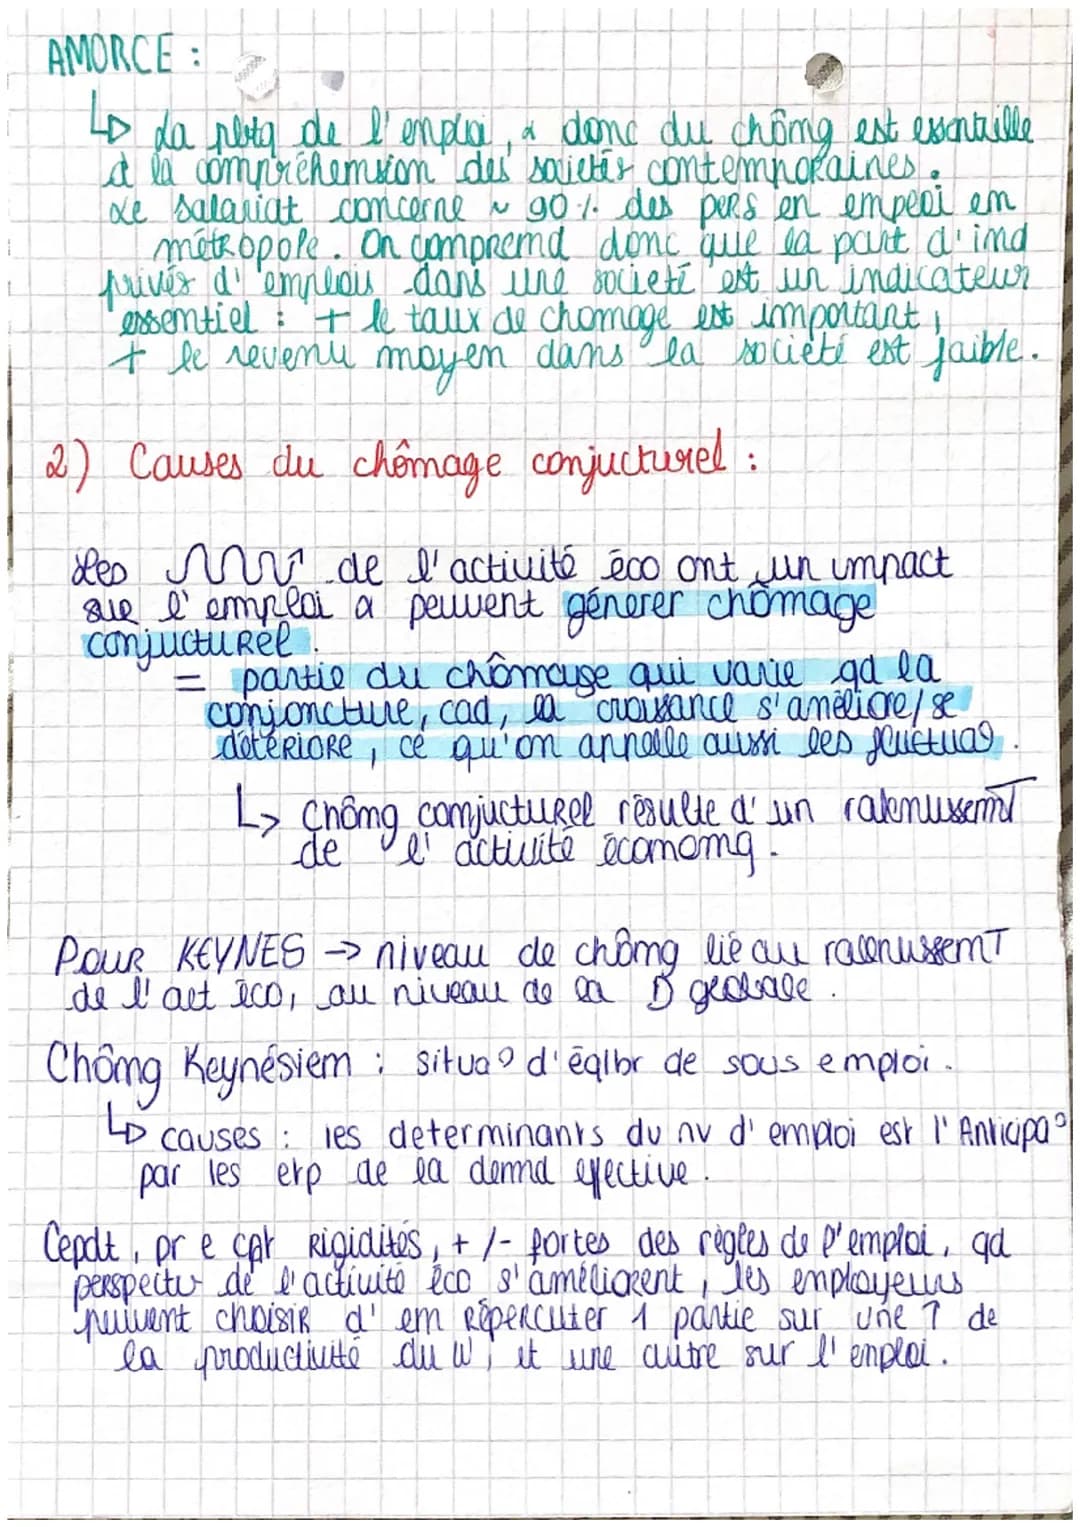 AMORCE :
↳ La de l'emploi, & donc du chômg est essentielle
à la compréhension des sociétés contemporaines.
Le salariat concerne ~ 90 % des pers en emploi en
métropole. On comprend donc que la part d'ind
privés d'emplois dans une société est un indicateur
essentiel : + le taux de chomage est important,
+ le revenu moyen dans la société est faible.
2) Causes du chômage conjucturel :
Les de l'activité éco ont un impact
sur l'emploi & peuvent générer chômage
conjucturel.
= partie du chômage qui varie qd la
conjoncture, cad, la croissance s'améliore/se
détériore, ce qu'on appelle aussi les fluctua°.
↳ Chômg conjucturel résulte d'un ralenissemt
de l'activité économq.
Pour KEYNES → niveau de chômg lié au ralenissemt
de l'act éco, au niveau de la D globale.
Chômg Keynésien : situa° d'éqlbr de sous emploi.
↳ causes : les determinants du nv d'emploi est l'Anticipa°
par les etp de la demnd effective.
Cepdt, pr e cpt Rigidités, + /- fortes des règles de l'emploi, qd
perspectv de l'activité éco s'améliorent, les employeurs
peuvent choisir d'em répercuter 1 partie sur une ↑ de
la productivité du W, et une autre sur l'emploi.